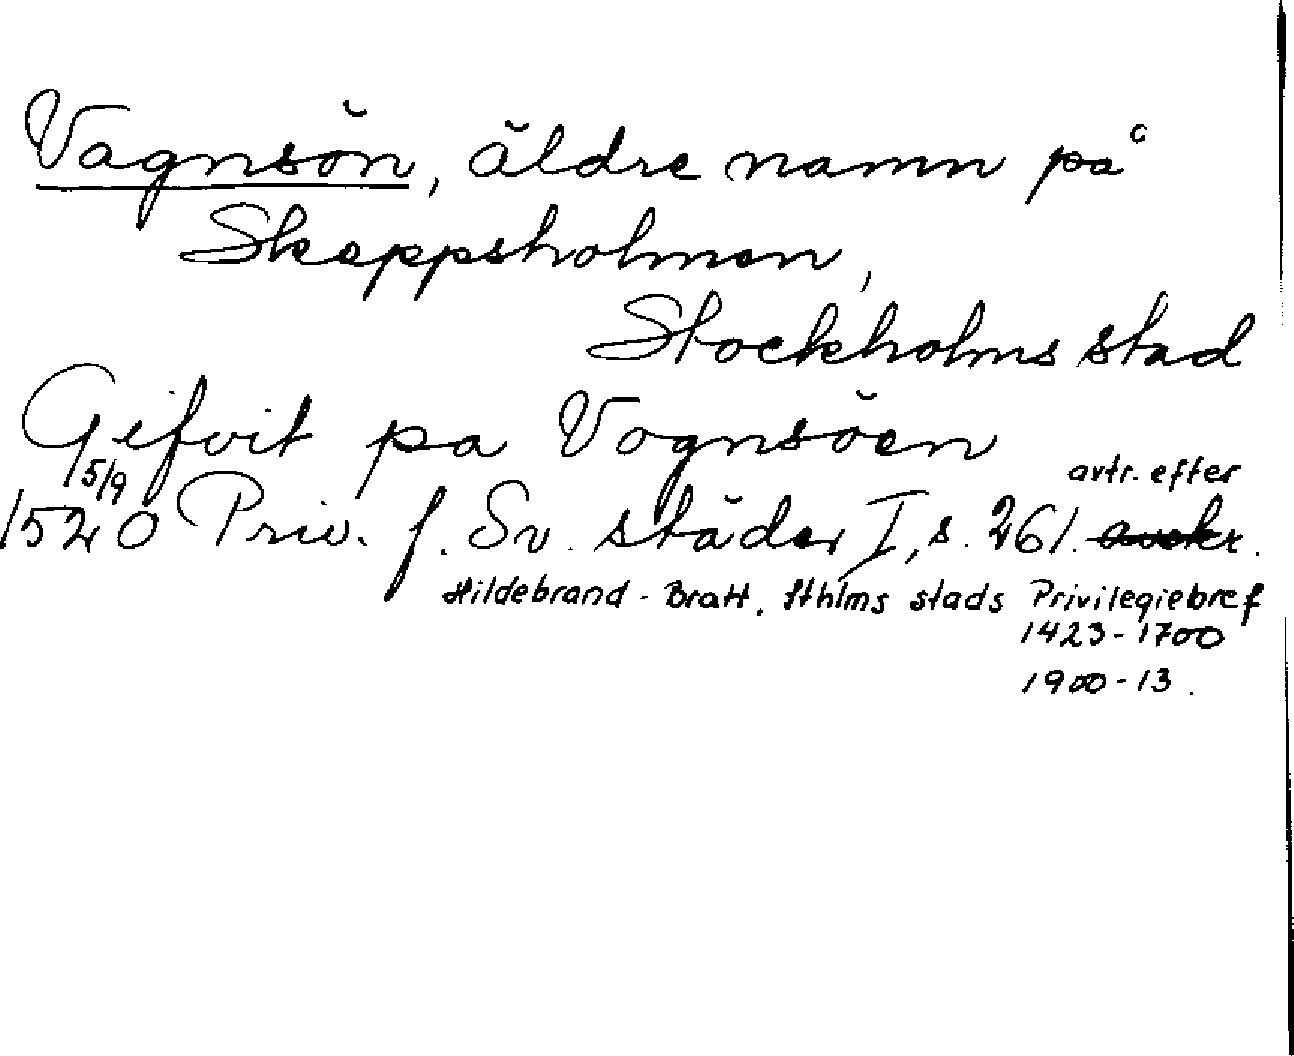 Vagnsön, äldre namn på
Skeppsholmen,
Stockholms stad
Gifvit pa Vognsöen
avtr. efter
1520 5/9 Priv. f. Sv. städer I, s. 261.
Hildebrand - Bratt, Sthlms stads Privilegiebref
1423-1700
1900-13.